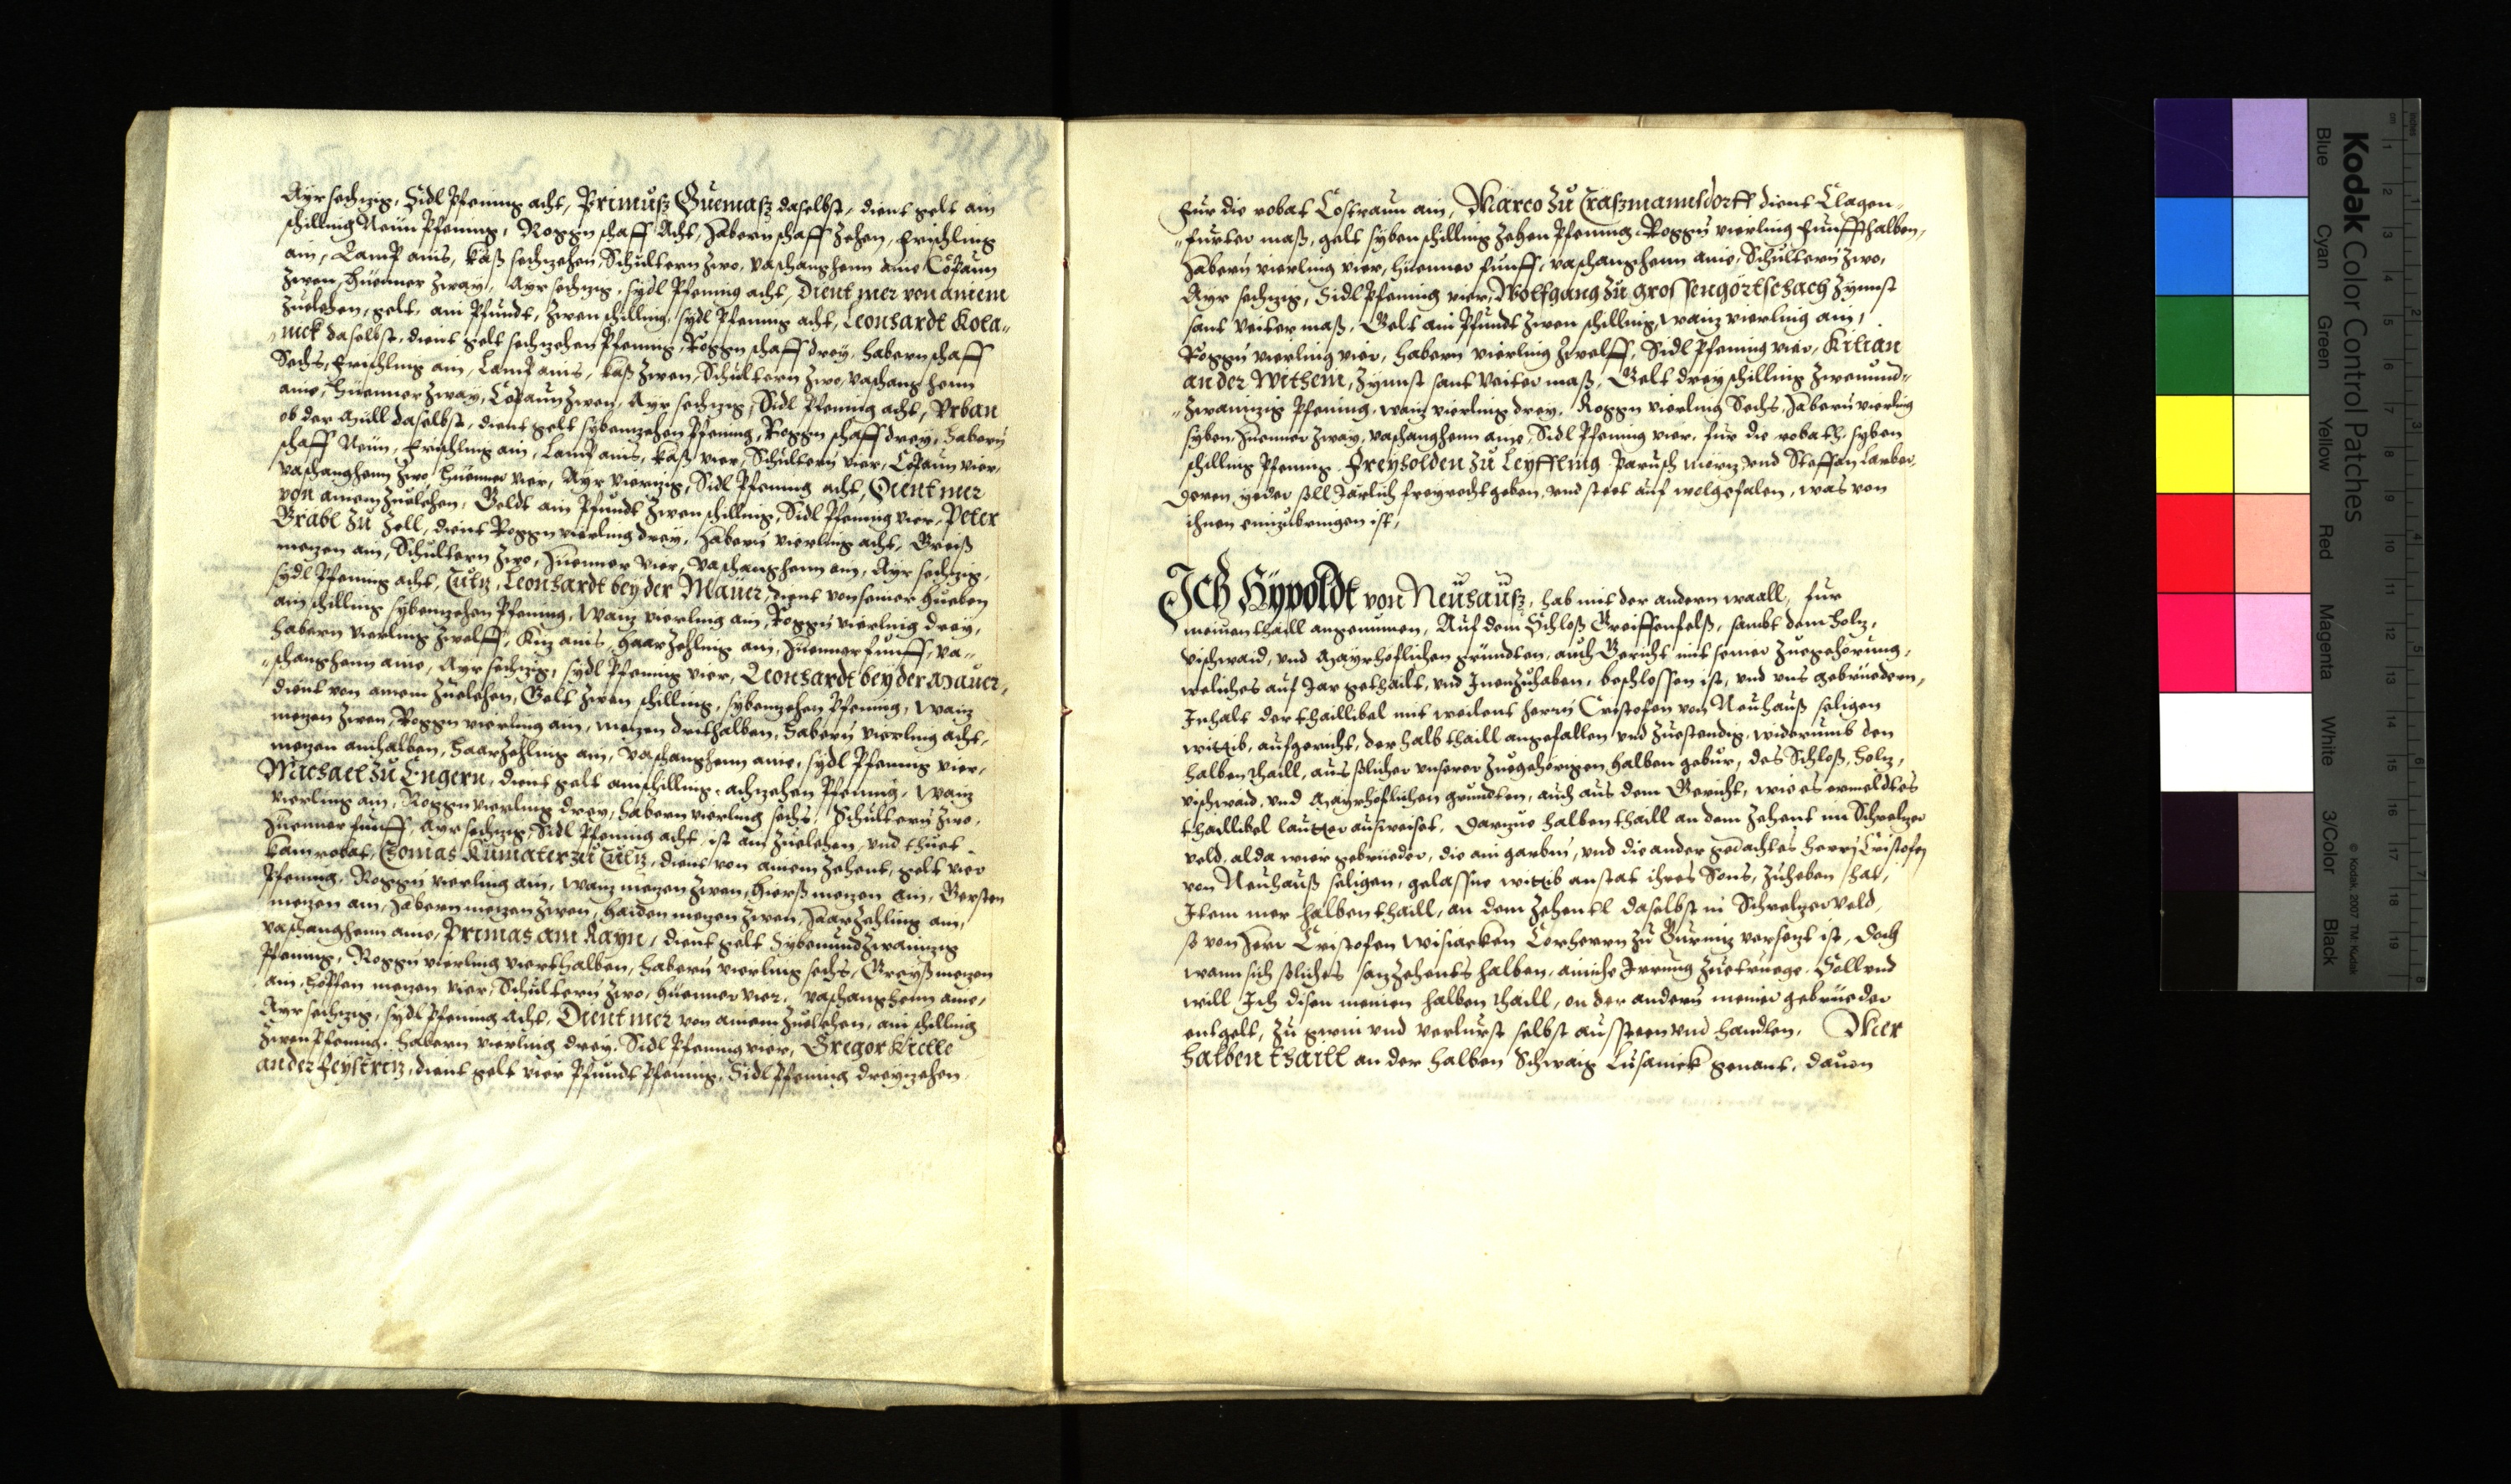 Ayr sechzig, Sidl Pfening acht, Primuß Guemasz daselbst, dient gelt ain
schilling Neun Pfening, Roggn schaff Acht, Habern schaff Zehen, frischling
ain, Lamp ains, käß sechzehen, Schultern zwo, vaschanghenn aine Copaun
zwen, hüenner zway, Ayr sechzig, sydl Pfening acht, Dient mer von ainem
Zuelehen, gelt, ain Pfundt, zwen schilling, sydl Pfening acht, Leonhardt Kola„
„nick daselbst, dient gelt sechzehen Pfening, Roggn schaff drey, habern schaff
Sechs, frischling ain, Lamp ains, käß zwen, Schultern zwo, vaschang henn
aine, hüenner zway, Copaun zwen, Ayr sechzig, Sidl Pfening acht, Vrban
ob der Müll daselbst, dient gelt sybenzehen Pfening, Roggn schaff drey, habern
schaff Neun, frischling ain, Lamp ains, käß vier, Schultern vier, Copaun vier,
vaschanghenn zwo, hüenner vier, Ayr vierzig, Sidl Pfening acht, Dient mer
von ainem Zuelehen, Geldt ain Pfundt zwen schilling, Sidl Pfening vier, Peter
Grabl zu Zell, dient Roggn vierling drey, habern vierling acht, Greiß
mezen ain, Schultern zwo, Huenner vier, vaschanghenn ain, Ayr sechzig,
sydl Pfening acht, Leonhardt bey der Mauer, dient von seiner hueben
ain schilling sybenzehen Pfening, Waiz vierling ain, Roggn vierling drey,
habern vierling zwelff, Kiz ains, haar Zehling ain, Huenner funff, va„
„schanghenn aine, Ayr sechzig, sydl Pfening vier, Leonhardt bey der Mauer,
dient von ainem Zuelehen, Gelt zwen schilling, sybenzehen Pfening, Waiz
mezen zwen, Roggn vierling ain, mezen drithalben, habern vierling acht,
mezen ainhalben, haar Zehling ain, vaschanghenn aine, sydl Pfening vier,
Michael zu Engern, dient gelt ain schilling, achzehen Pfening, Waiz
vierling ain, Roggn vierling drey, habern vierling sechs, Schultern zwo,
Huenner funff, Ayr sechzig, Sidl Pfening acht, ist ain Zuelehen, vnd thuet
kain robat, Thomas Kumater zu, dient von ainem Zehent, gelt vier
Pfening, Roggn vierling ain, Waiz mezen zwen, hierß mezen ain, Gersten
mezen ain, Habern mezen zwen, haiden mezen zwen, Haar Zehling ain,
vaschanghenn aine, Primas am Rayn, dient gelt Sybenundzwainzig
Pfening, Roggn vierling vierthalben, habern vierling sechs, Greyß mezen
ain, hopffen mezen vier, Schultern zwo, Huenner vier, vaschanghenn aine,
Ayr sechzig, sydl Pfening Acht, Dient mer von ainem Zuelehen, ain schilling
zwen Pfening, habern vierling drey, Sidl Pfening vier, Gregor
an der Feystriz, dient gelt vier Pfundt Pfening, Sidl Pfening dreyzehen
fur die robat Costraun ain, Marco zu Traßmannsdorff dient Clagen„
„furter maß, gelt syben schilling zehen Pfening Roggn vierling funffthalben,
Habern vierling vier, huenner funff, vaschanghenn aine, Schultern zwo,
Ayr sechzig, Sidl Pfening vier, Wolfgang zu grossengörtschach zynnst
sant Veiter maß, Gelt ain Pfundt zwen schilling, waiz vierling ain,
Roggn vierling vier, habern vierling zwelff, Sidl Pfening vier, Kilian
an der Withem, zynnst sant Veiter maß, Gelt drey schilling zwenund„
„zwainzig Pfening, waiz vierling drey, Roggn vierling Sechs, Habern vierling
syben, Huenner zway, vaschanghenn aine, Sidl Pfening vier, für die robath, syben
schilling Pfening. Freyholden zu Leyfling Parusch vnd Steffan Larber,
deren yeder soll Järlich freyrecht geben, vnd steet auf wolgefalen, was von
ihnen einzubringen ist,
Ich Hÿpoldt von Neuhauß, hab mit der andern waall, für
meinen thaill angenumen, Auf dem Schloß Greiffenfelß, sambt dem holz,
vischwaid, vnd Mayrhöflichen gründten, auch Gericht mit seiner zuegehörung,
weliches auf Jar gethailt, vnd Innenzuhaben, beschlossen ist, vnd vns gebruedern,
Inhalt der thaillibel mit weilent herrn Cristofen von Neuhauß seligen
wittib, aufgericht, der halb thaill angefallen vnd zuestendig, widerumb den
halben thaill, aus solicher vnserer zuegehörigen halben gebur, des Schloß, holz,
vischwaid, vnd Mayrhöflichen grundten, auch aus dem Gericht, wie es ermeldtes
thaillibel lautter ausweiset. Darzue halben thaill an dem Zehent im Schrelzer
veld, alda wier gebrueder, die ain garben, vnd die ander gedachtes herrn Cristofen
von Neuhauß seligen, gelassne wittib anstat ihres Sons, zuheben hat,
Item mer halben thaill, an dem Zehentl daselbst in Schrelzerveld,
so von Herr Cristofen Wisiacken Corherrn zu Gurniz versezt ist, doch
wann sich soliches saz Zehents halben, ainiche Irrung zuetruege. Soll vnd
will Ich disen meinen halben thaill, on der andern meiner gebrueder
entgelt, zu gwin vnd verlurst selbst aussteen vnd handlen. Mer
halben thaill an der halben Schwaig Lusanick genant, dauon